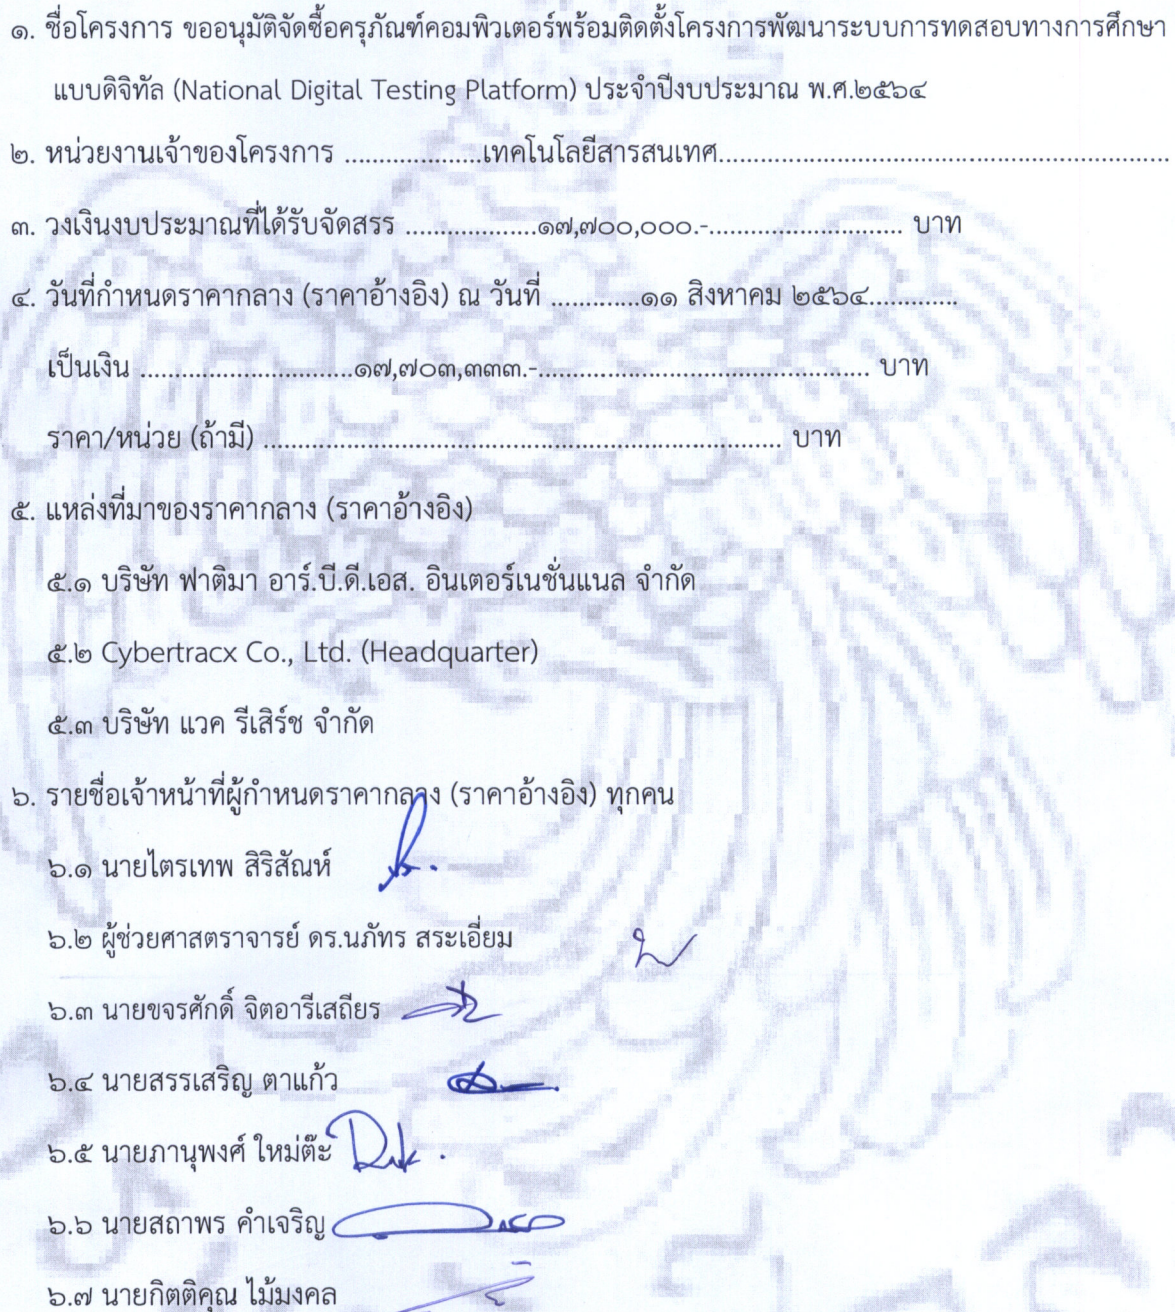 ๑. ชื่อโครงการ ขออนุมัติจัดซื้อครุภัณฑ์คอมพิวเตอร์พร้อมติดตั้งโครงการพัฒนาระบบการทดสอบทางการศึกษา
แบบดิจิทัล (National Digital Testing Platform) ประจำปีงบประมาณ พ.ศ.๒๕๖๔
๒. หน่วยงานเจ้าของโครงการ ....................เทคโนโลยีสารสนเทศ.................................................................
๓. วงเงินงบประมาณที่ได้รับจัดสรร ...................๑๗,๗๐๐,๐๐๐.-............................ บาท
๔. วันที่กำหนดราคากลาง (ราคาอ้างอิง) ณ วันที่ .............๑๑ สิงหาคม ๒๕๖๔.............
เป็นเงิน ...............................๑๗,๗๐๓,๓๓๓.-................................................ บาท
ราคา/หน่วย (ถ้ามี) ........................................................................... บาท
๕. แหล่งที่มาของราคากลาง (ราคาอ้างอิง)
๕.๑ บริษัท ฟาติมา อาร์.บี.ดี.เอส. อินเตอร์เนชั่นแนล จำกัด
๕.๒ Cybertracx Co., Ltd. (Headquarter)
๕.๓ บริษัท แวค รีเสิร์ช จำกัด
๖. รายชื่อเจ้าหน้าที่ผู้กำหนดราคากลาง (ราคาอ้างอิง) ทุกคน
๖.๑ นายไตรเทพ สิริสัณห์
๖.๒ ผู้ช่วยศาสตราจารย์ ดร.นภัทร สระเอี่ยม
๖.๓ นายขจรศักดิ์ จิตอารีเสถียร
๖.๔ นายสรรเสริญ ตาแก้ว
๖.๕ นายภานุพงศ์ ใหม่ต๊ะ
๖.๖ นายสถาพร คำเจริญ
๖.๗ นายกิตติคุณ ไม้มงคล